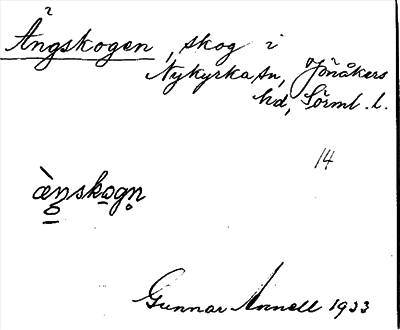 Ängskogen, skog i
Nykyrka sn, Jönåkers
hd, Sörml. l.
14
ànskogn
Gunnar Annell 1933